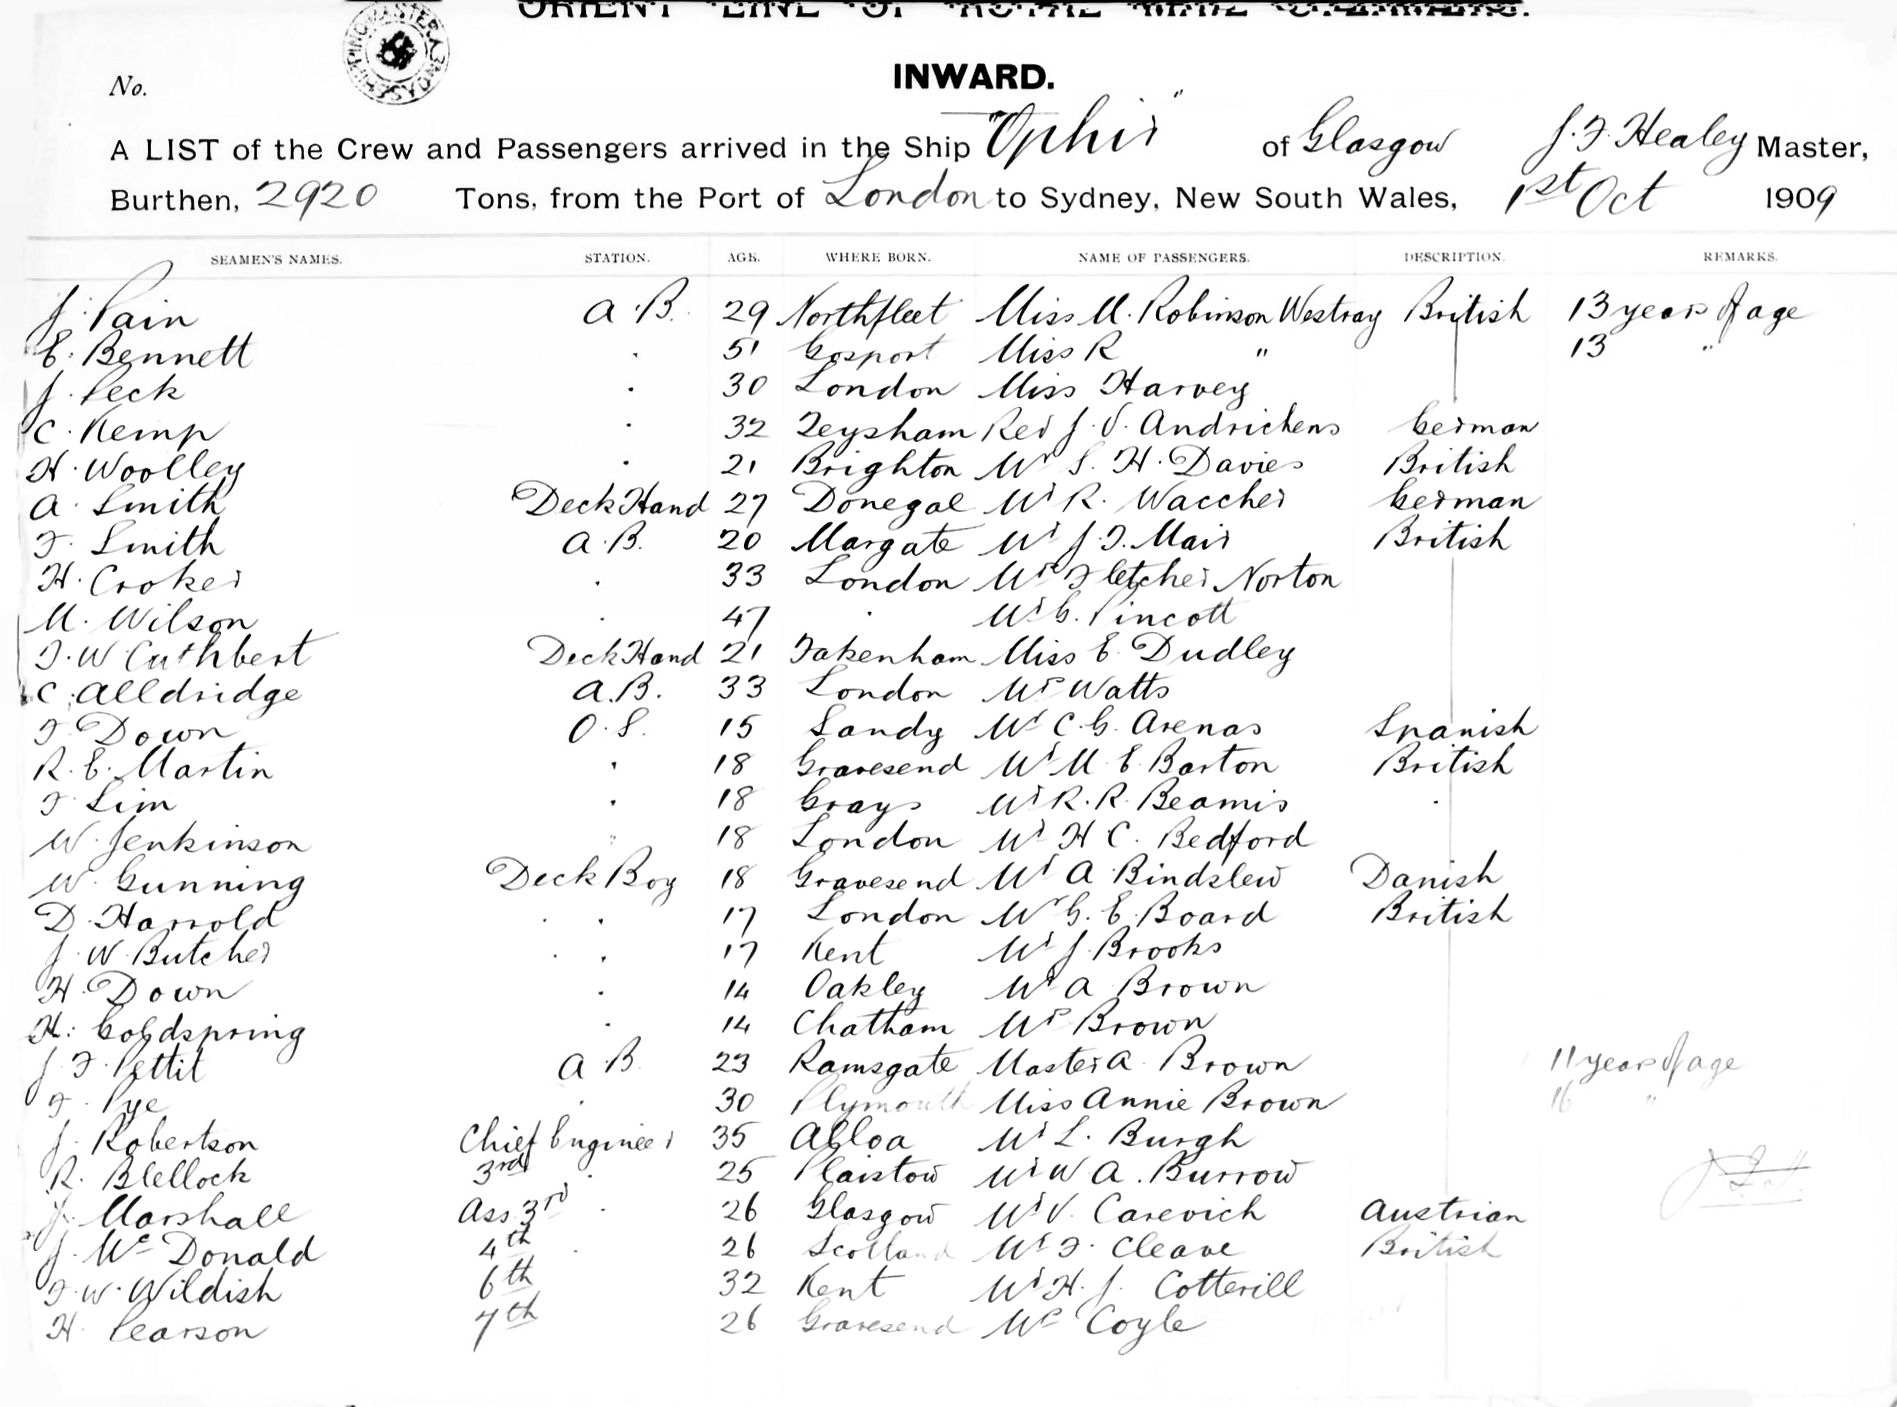 ORIENT LINE OF ROYAL MAIL STEAMERS.
SHIPPING MASTER SYDNEY
INWARD.
No.
A LIST of the Crew and Passengers arrived in the Ship "Ophir" of Glasgow J. F. Healey Master,
Burthen, 2920 Tons, from the Port of London to Sydney, New South Wales, 1st Oct 1909
SEAMEN'S NAMES. STATION. AGE. WHERE BORN. NAME OF PASSENGERS. DESCRIPTION. REMARKS.
J. Pain A.B. 29 Northfleet Miss M. Robinson Westray British 13 years of age
E. Bennett . 51 Gosport Miss R " 13 "
J. Peck . 30 London Miss Harvey
C. Kemp . 32 Teysham Rev J. V. Andrickens German
H. Woolley . 21 Brighton Mr S. H. Davies British
A. Smith Deck Hand 27 Donegal Mr R. Waccher German
F. Smith A.B. 20 Margate Mr J. F. Mair British
H. Croker . 33 London Mrs Fletcher Norton
M. Wilson . 47 . Mr G. Pincott
F. W. Cuthbert Deck Hand 21 Fakenham Miss E. Dudley
C. Alldridge A.B. 33 London Mrs Watts
F. Down O.S. 15 Sandy Mr C. G. Arenas Spanish
R. E. Martin . 18 Gravesend Mr M. E. Barton British
F. Sim . 18 Grays Mr R. R. Beamis .
W. Jenkinson " 18 London Mr H C. Bedford
W. Gunning Deck Boy 18 Gravesend Mr A. Bindslew Danish
D. Harrold . . 17 London Mr G. E. Board British
J. W. Butcher . . 17 Kent Mr J. Brooks
H. Down . 14 Oakley Mr A Brown
H. Goldspring . 14 Chatham Mrs Brown
J. F. Pettit A.B. 23 Ramsgate Master A. Brown 11 years of age
F. Pye . 30 Plymouth Miss Annie Brown 16 "
J. Robertson Chief Engineer 35 Alloa Mr L. Burgh
R. Blellock 3rd . 25 Plaistow Mr W A. Burrow
J. Marshall Ass. 3rd . 26 Glasgow Mr V. Carevich Austrian
J. McDonald 4th . 26 Scotland Mr F. Cleave British
F. W. Wildish 6th 32 Kent Mr H. J. Cotterill
H. Pearson 7th 26 Gravesend Mrs Coyle